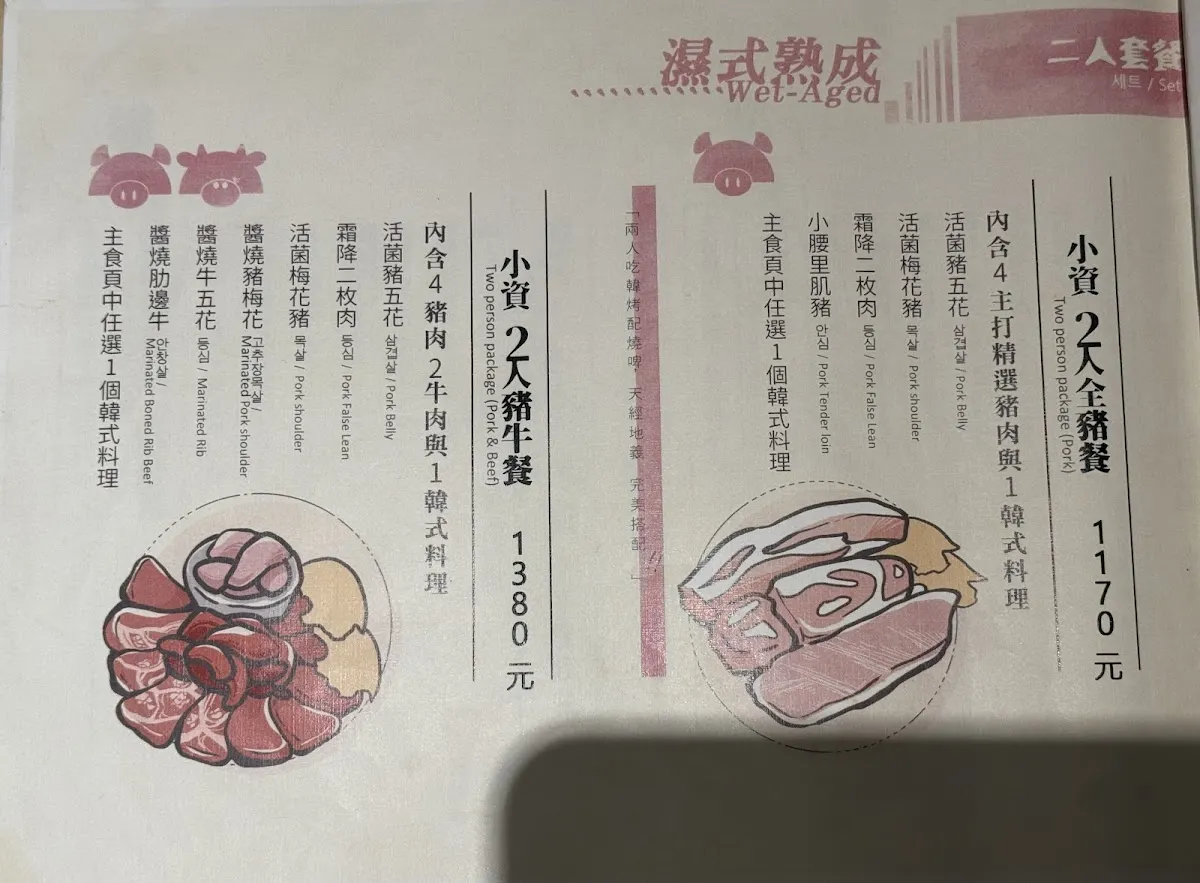 二人套餐
세트 / Set
濕式熟成
Wet-Aged
小資 2人全豬餐 1170元
Two person package (Pork)
內含4主打精選豬肉與1韓式料理
活菌豬五花 삼겹살 / Pork Belly
活菌梅花豬 목살 / Pork shoulder
霜降二枚肉 등심 / Pork False Lean
小腰里肌豬 안심 / Pork Tender loin
主食頁中任選1個韓式料理
「兩人吃韓烤配燒啤，天經地義 完美搭配!!」
小資 2人豬牛餐 1380元
Two person package (Pork & Beef)
內含4豬肉2牛肉與1韓式料理
活菌豬五花 삼겹살 / Pork Belly
霜降二枚肉 등심 / Pork False Lean
活菌梅花豬 목살 / Pork shoulder
醬燒豬梅花 고추장목살 /
Marinated Pork shoulder
醬燒牛五花 등심 / Marinated Rib
醬燒肋邊牛 안창살 /
Marinated Boned Rib Beef
主食頁中任選1個韓式料理